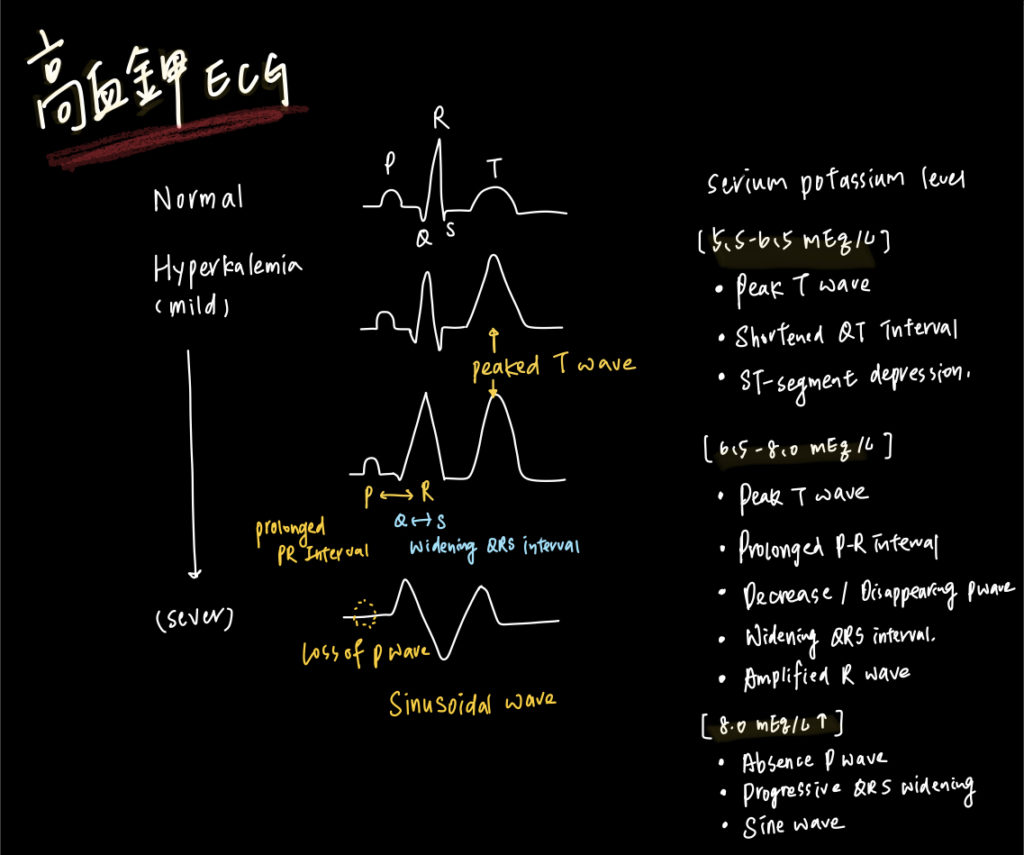 高血鉀 ECG
Normal
Hyperkalemia
(mild)
(sever)
P
R
T
Q
S
peaked T wave
P ↔ R
Q ↔ S
prolonged
PR Interval
Widening QRS interval
Loss of p wave
Sinusoidal wave
Serium potassium level
[5.5-6.5 mEq/L]
• Peak T wave
• Shortened QT Interval
• ST-segment depression.
[6.5-8.0 mEq/L]
• Peak T wave
• Prolonged P-R interval
• Decrease / Disappearing p wave
• Widening QRS interval.
• Amplified R wave
[8.0 mEq/L ↑]
• Absence P wave
• Progressive QRS widening
• Sine wave